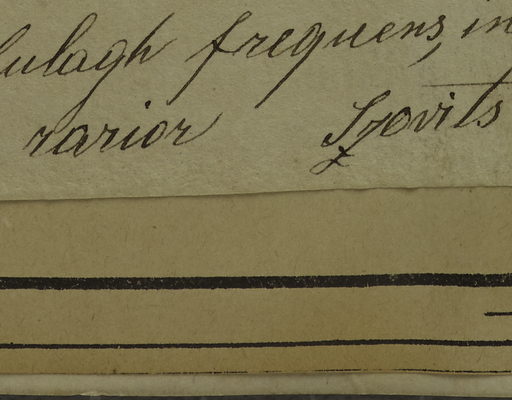 lulagh frequens, in
rarior Szovits